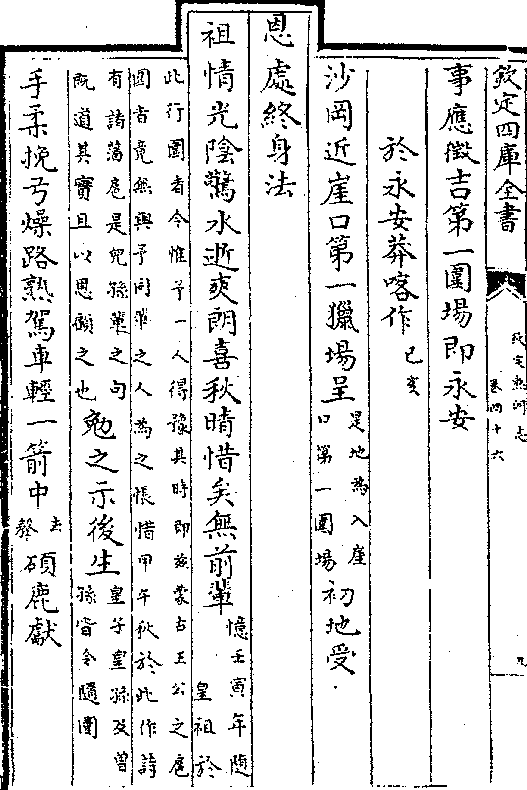 欽定四庫全書
欽定熱河志
卷四十六
九
事應徵吉第一圍場即永安
於永安莽喀作己亥
沙岡近崖口第一獵場呈是地為入崖口第一圍場初地受
恩處終身法
祖情光陰驚水逝爽朗喜秋晴惜矣無前輩憶壬寅年隨皇祖於
此行圍者今惟予一人得豫其時即茲蒙古王公之扈
圍者竟無與予同輩之人為之悵惜甲午秋於此作詩
有諸藩扈是兒孫輩之句既道其實且以思顧之也勉之示後生皇子皇孫及曾孫皆令隨圍
手柔挽弓燥路熟駕車輕一箭中去聲碩鹿獻